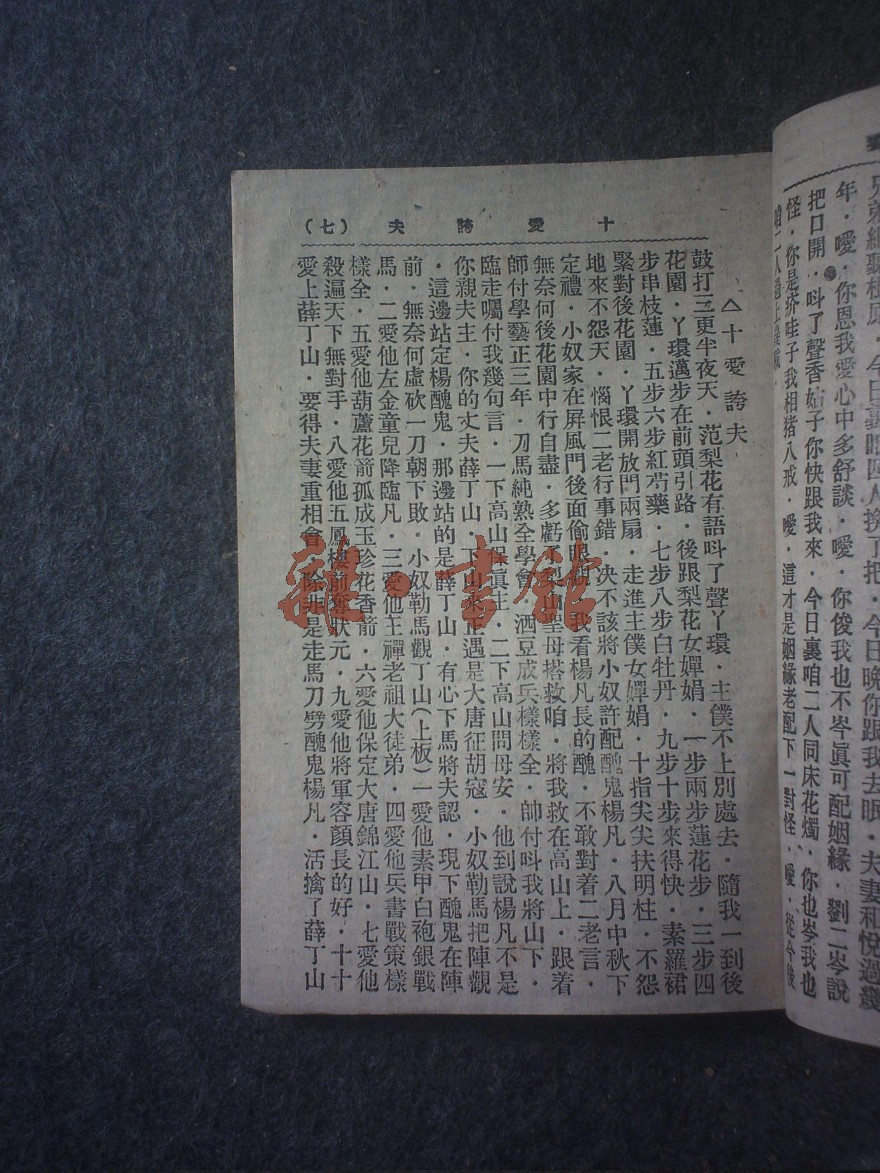 十愛誇夫（七）
△十愛誇夫
鼓打三更半夜天．范梨花有語呌了聲丫環．主僕不上別處去．隨我一到後
花園．丫環邁步在前頭引路．後跟梨花女嬋娟．一步兩步蓮花步．三步四
步串枝蓮．五步六步紅芍藥．七步八步白牡丹．九步十步來得快．素羅裙
緊對後花園．丫環開放門兩扇．走進主僕女嬋娟．十指尖尖扶明柱．不怨
地來不怨天．惱恨二老行事錯．决不該將小奴許配醜鬼楊凡．八月中秋下
定禮．小奴家在屏風門後面偷眼觀．我看楊凡長的醜．不敢對着二老言．
無奈何後花園中行自盡．多虧了梨山聖母搭救咱．將我救在高山上．跟着
師付學藝正三年．刀馬純熟全學會．洒豆成兵樣樣全．帥付呌我將山下．
臨走囑付我幾句言．一下高山保眞主．二下高山問母安．他到說楊凡不是
你親夫主．你的丈夫薛丁山．下山來正遇是大唐征胡寇．小奴勒馬把陣觀
．這邊站定楊醜鬼．那邊站的是薛丁山．有心下馬將夫認．現下醜鬼在陣
前．無奈何虛砍一刀朝下敗．小奴勒馬觀丁山（上板）一愛他素甲白袍銀戰
馬．二愛他左金童兒降臨凡．三愛他王禪老祖大徒弟．四愛他兵書戰策樣
樣全．五愛他葫蘆花箭孤成玉珍花香箭．六愛他保定大唐錦江山．七愛他
殺遍天下無對手．八愛他五鳳樓前奪狀元．九愛他將軍容顏長的好．十十
愛上薛丁山．要得夫妻重相會．除非是走馬刀劈醜鬼楊凡．活擒了薛丁山
兄弟細聽根原．今日裏咱四人換了把．今日晚你跟我去眠．夫妻和悅過幾
年．噯．你恩我愛心中多舒談．噯．你俊我也不岑眞可配姻緣．劉二岑說
把口開．呌了聲香姑子你快跟我來．今日裏咱二人同床花燭．你也岑我也
怪．你是疥哇子我相猪八戒．噯．這才是姻緣老配下一對怪．噯．從今後
咱二人
書館